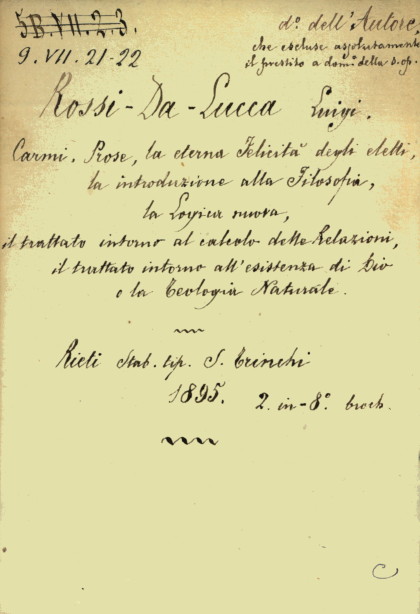 5B.VII.2.3.
9.VII.21-22
d.º dell'Autore,
che escluse assolutamente
il prestito a dom.º della s. op.
Rossi-Da-Lucca Luigi.
Carmi, Prose, la eterna Felicità degli eletti,
la introduzione alla Filosofia,
la Logica nuova,
il trattato intorno al calcolo delle Relazioni,
il trattato intorno all'esistenza di Dio
o la Teologia Naturale.
Rieti Stab. tip. S. Trinchi
1895. 2. in-8.º broch.